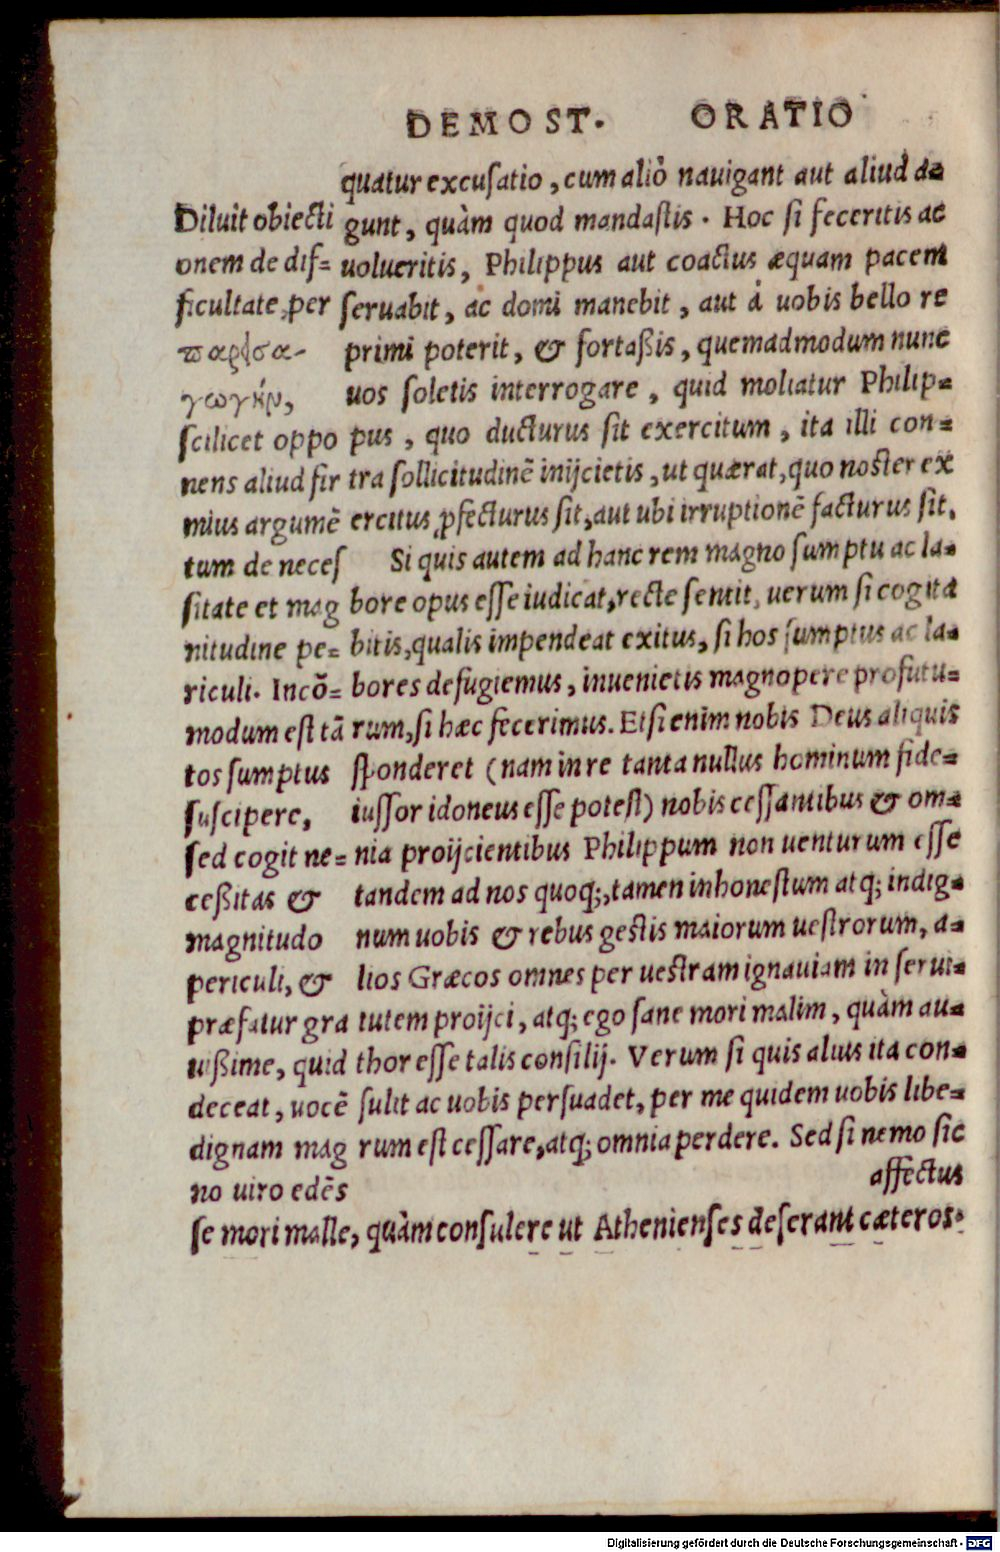 DEMOST. ORATIO
quatur excusatio, cum aliò nauigant aut aliud a-
gunt, quàm quod mandastis. Hoc si feceritis ac
uolueritis, Philippus aut coactus æquam pacem
seruabit, ac domi manebit, aut à uobis bello re
primi poterit, & fortaßis, quemadmodum nunc
uos soletis interrogare, quid moliatur Philip-
pus, quo ducturus sit exercitum, ita illi con-
tra sollicitudinē inijcietis, ut quærat, quo noster ex
ercitus ꝓfecturus sit, aut ubi irruptionē facturus sit.
Si quis autem ad hanc rem magno sumptu ac la-
bore opus esse iudicat, recte sentit, uerum si cogita
bitis, qualis impendeat exitus, si hos sumptus ac la-
bores defugiemus, inuenietis magnopere profutu-
rum, si hæc fecerimus. Etsi enim nobis Deus aliquis
sponderet (nam in re tanta nullus hominum fide-
iussor idoneus esse potest) nobis cessantibus & om-
nia proijcientibus Philippum non uenturum esse
tandem ad nos quoq;, tamen inhonestum atq; indig-
num uobis & rebus gestis maiorum uestrorum, a-
lios Græcos omnes per uestram ignauiam in serui-
tutem proijci, atq; ego sane mori malim, quàm au-
thor esse talis consilij. Verum si quis alius ita con-
sulit ac uobis persuadet, per me quidem uobis libe-
rum est cessare, atq; omnia perdere. Sed si nemo sic
affectus
Diluit obiecti
onem de dif-
ficultate, per
παρεισα-
γωγὴν,
scilicet oppo
nens aliud fir
mius argumē
tum de neces
sitate et mag
nitudine pe-
riculi. Incō-
modum est tā
tos sumptus
suscipere,
sed cogit ne-
ceßitas &
magnitudo
periculi, &
præfatur gra
uißime, quid
deceat, uocē
dignam mag
no uiro edēs
se mori malle, quàm consulere ut Athenienses deserant cæteros.
Digitalisierung gefördert durch die Deutsche Forschungsgemeinschaft - DFG